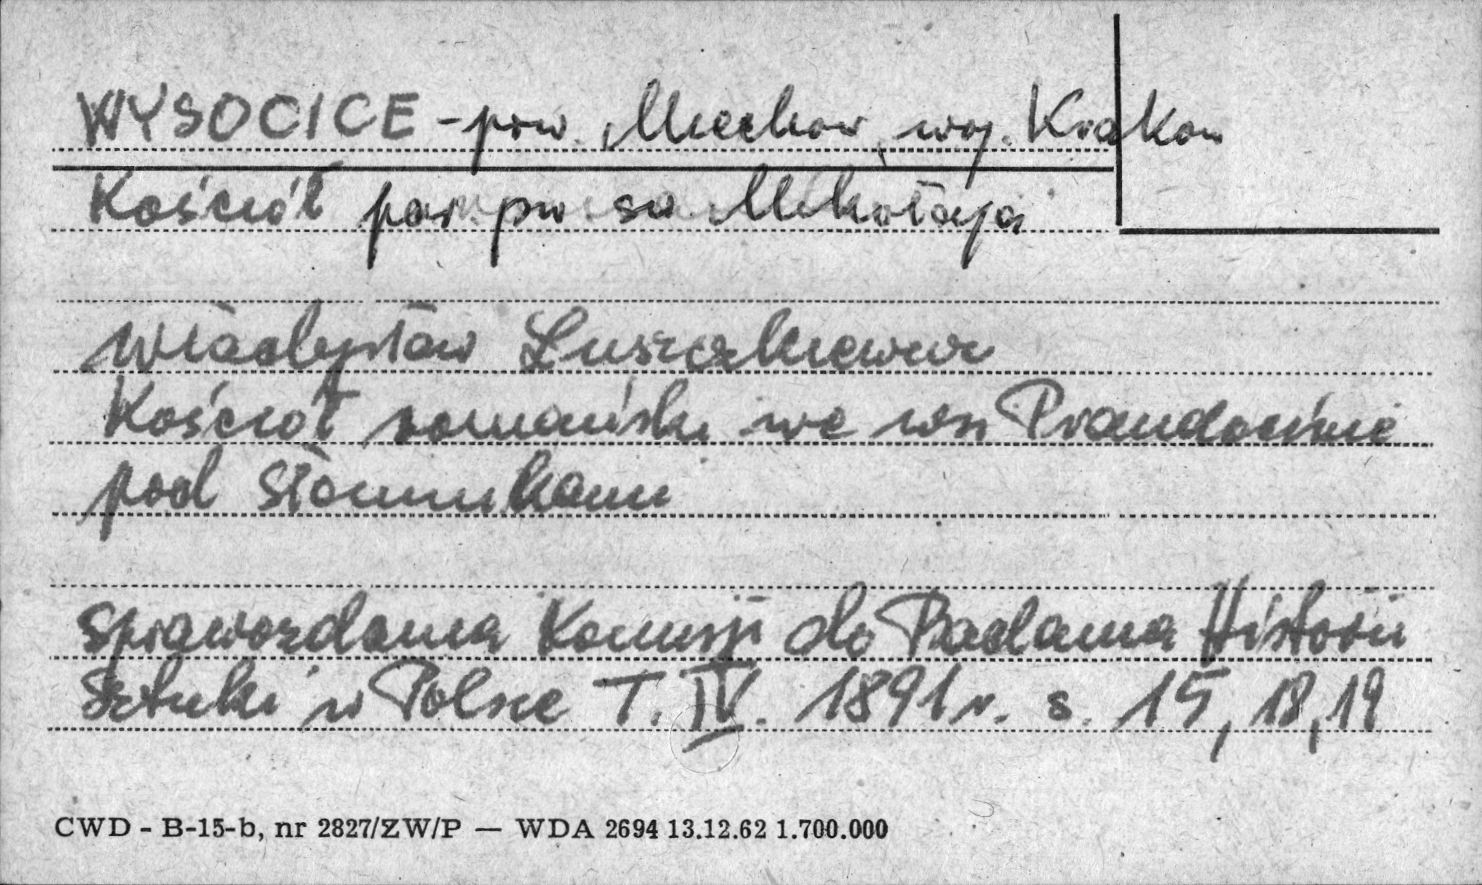 WYSOCICE - pow. Miechów, woj. Kraków
Kościół par pw św Mikołaja
Władysław Łuszczkiewicz
Kościół romański we wsi Prandocinie
pod Słomnikami
Sprawozdania Komisji do Badania Historii
Sztuki w Polsce T. IV. 1891 r. s. 15, 18, 19
CWD - B-15-b, nr 2827/ZW/P — WDA 2694 13.12.62 1.700.000